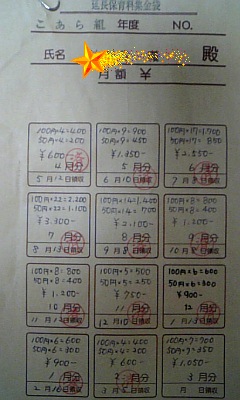 延長保育料集金袋
こあら組 年度 NO.
氏名 殿
月額 ¥
100円×4=400
50円×4=200
¥600
4月分
5月12日領収
100円×9=900
50円×9=450
¥1.350
5月分
6月10日領収
100円×17=1,700
50円×17=850
¥2.550-
6月分
7月8日領収
100円×22=2.200
50円×22=1.100
¥3.300-
7月分
8月13日領収
100円×14=1,400
50円×14=700
¥2,100-
8月分
9月日領収
100円×8=800
50円×8=400
¥1.200-
9月分
10月日領収
100円×8=800
50円×8=400
¥1.200-
10月分
11月12日領収
100円×5=500
50円×5=250
¥750-
11月分
12月10日領収
100円×6=600
50円×6=300
¥900-
12月分
1月13日領収
100円×6=600
50円×6=300
¥900-
1月分
2月16日領収
100円×4=400
50円×4=200
¥600-
2月分
3月日領収
100円×7=700
50円×7=350
¥1,050-
3月分
月日領収